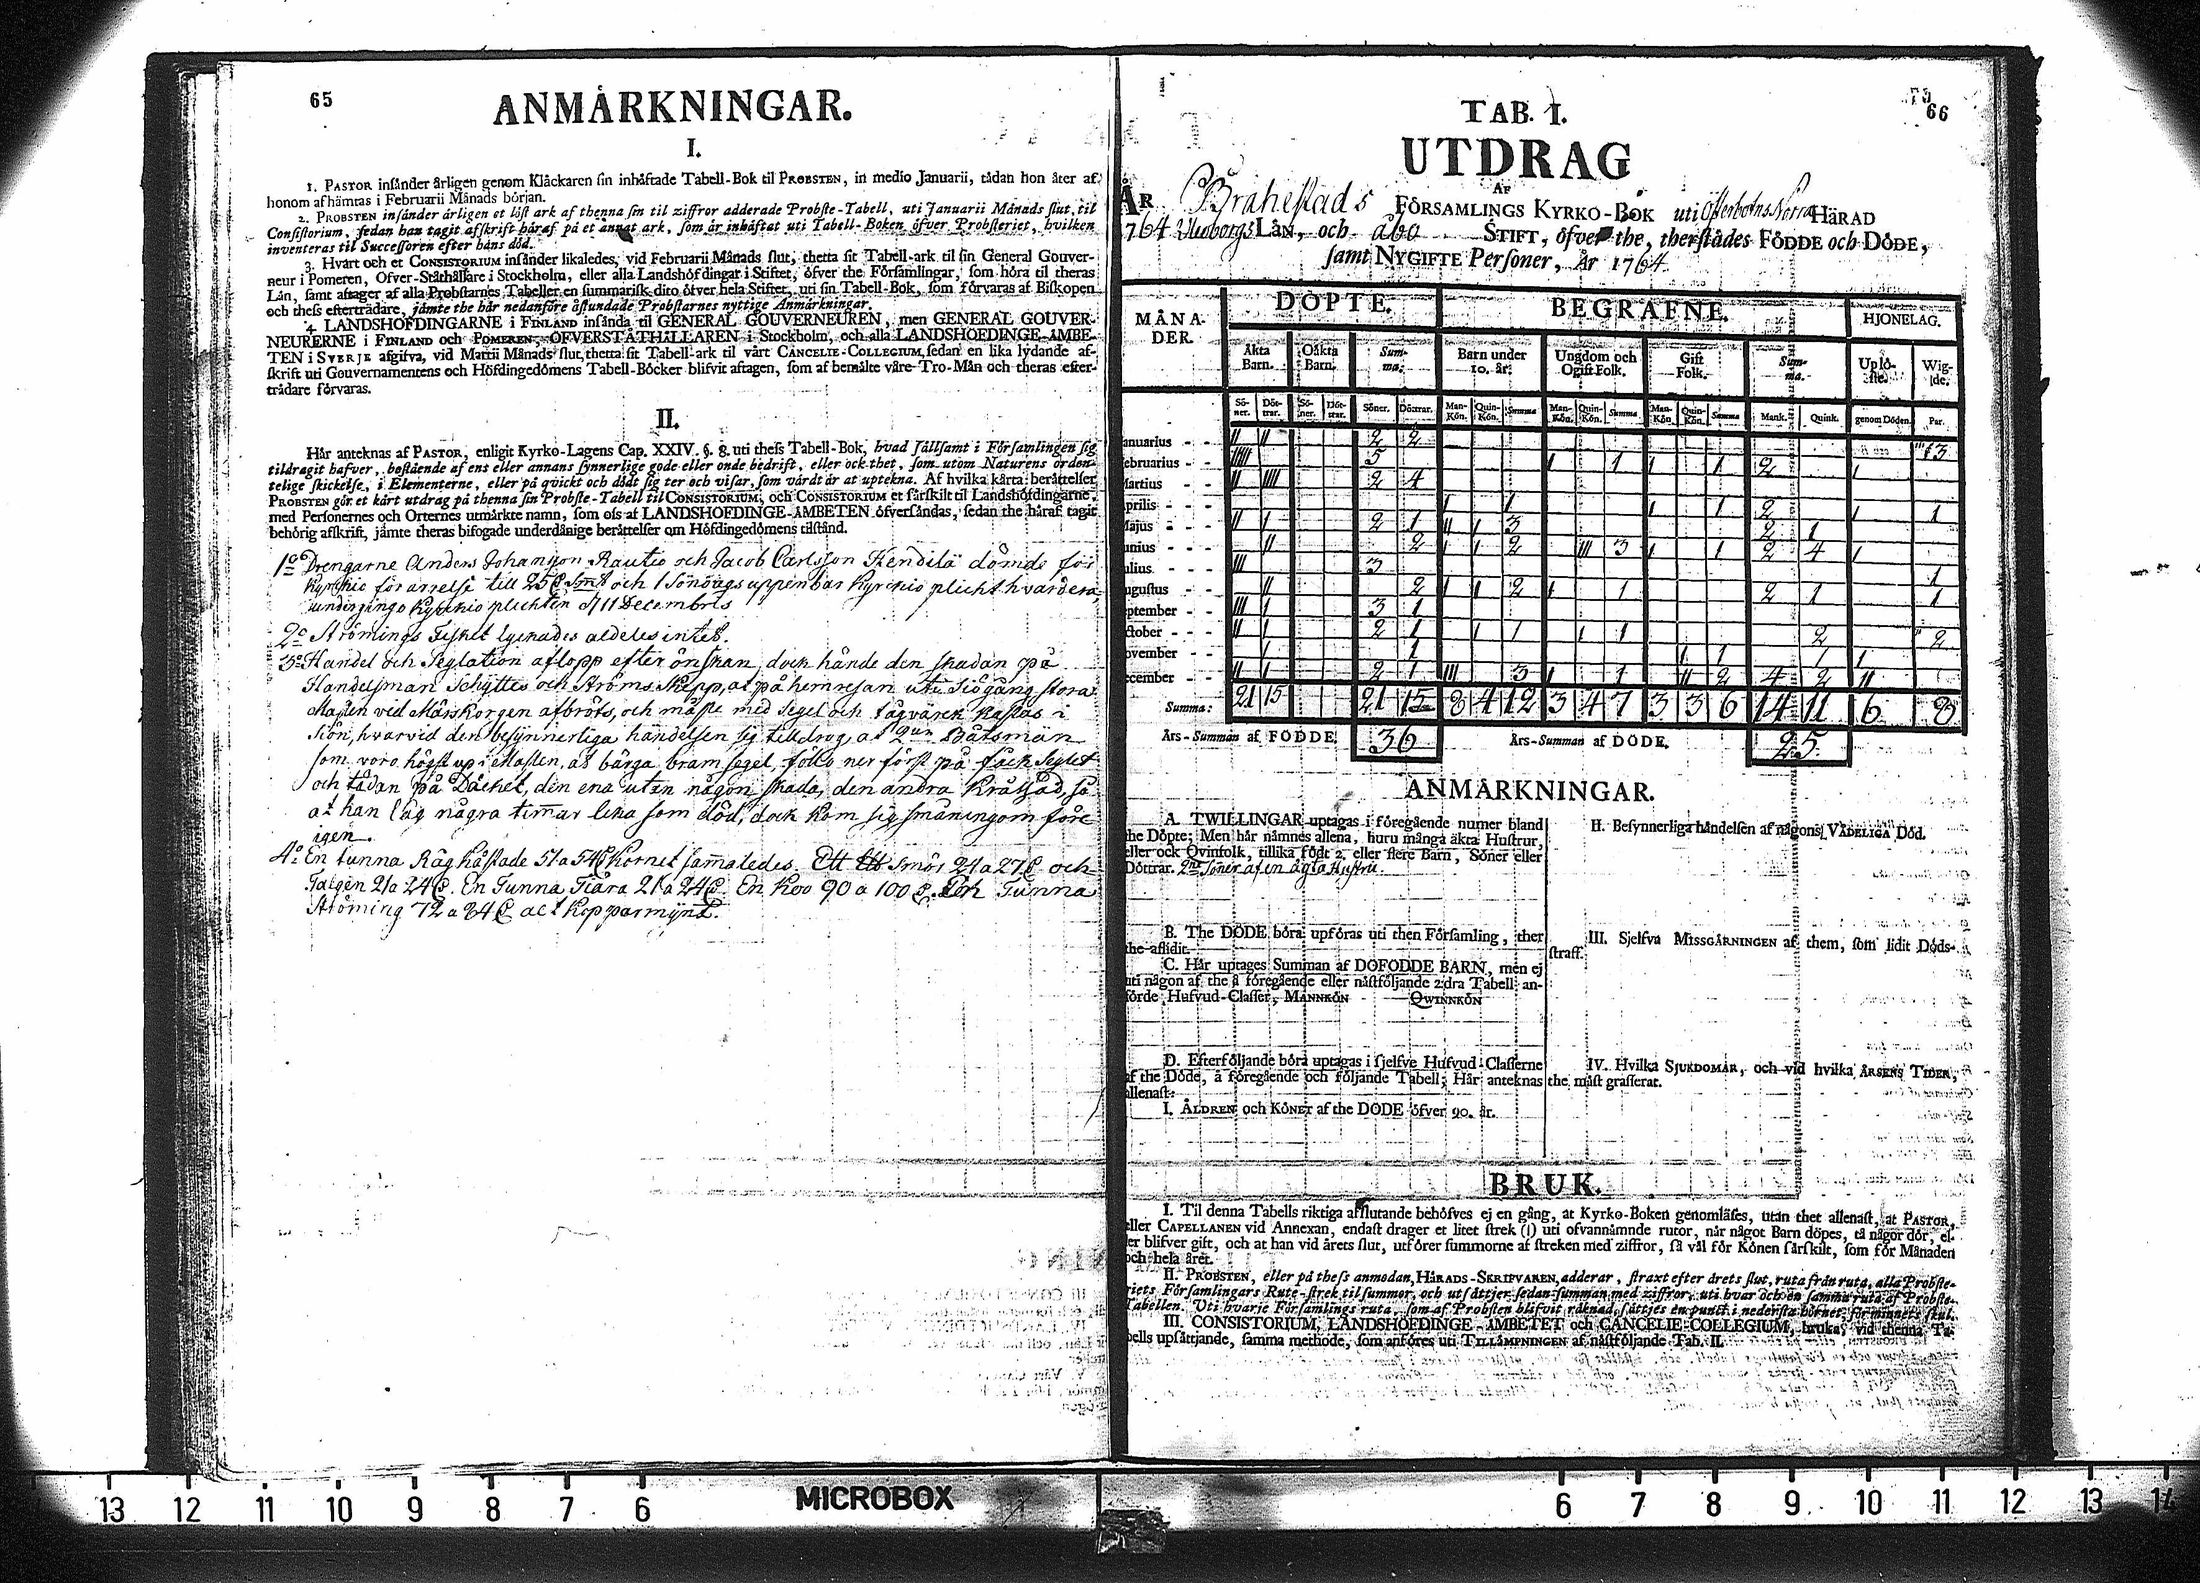 65
ANMÅRKNINGAR.
I.
1. PASTOR insånder årligen genom Klåckaren sin inhåftade Tabell-Bok til PROBSTEN, in medio Januarii, tådan hon åter af
honom afhåmtas i Februarii Månads början.
2. PROBSTEN insånder årligen et löst ark af thenna sin til ziffror adderade Probste-Tabell, uti Januarii Månads slut, til
Consistorium, sedan han tagit afskrift håraf på et annat ark, som år inhåftat uti Tabell-Boken öfver Probsteriet, hvilken
inventeras til Successoren efter hans död.
3. Hvart och et CONSISTORIUM insånder likaledes, vid Februarii Månads slut, thetta sit Tabell-ark til sin General Gouver-
neur i Pomeren, Öfver-Ståthållare i Stockholm, eller alla Landshöfdingar i Stiftet, öfver the Församlingar, som höra til theras
Lån, samt aftager af alla Probstarnes Tabeller en summarisk dito öfver hela Stiftet, uti sin Tabell-Bok, som förvaras af Biskopen
och thess eftertrådare, jåmte the hår nedanföre åstundade Probstarnes nyttige Anmårkningar.
4. LANDSHÖFDINGARNE i FINLAND insånda til GENERAL GOUVERNEUREN, men GENERAL GOUVER-
NEURERNE i FINLAND och POMEREN, ÖFVERSTÅTHÅLLAREN i Stockholm, och alla LANDSHÖFDINGE-ÅMBE-
TEN i SVERJE afgifva, vid Martii Månads slut, thetta sit Tabell-ark til vårt CANCELIE-COLLEGIUM, sedan en lika lydande af-
skrift uti Gouvernamentens och Höfdingedömens Tabell-Böcker blifvit aftagen, som af bemålte våre Tro-Mån och theras efter-
trådare förvaras.
II.
Hår anteknas af PASTOR, enligit Kyrko-Lagens Cap. XXIV. §. 8. uti thess Tabell-Bok, hvad sållsamt i Församlingen sig
tildragit hafver, bestående af ens eller annans synnerlige gode eller onde bedrift, eller ock thet, som utom Naturens orden-
telige skickelse, i Elementerne, eller på qvickt och dödt sig ter och visar, som vårdt år at uptekna. Af hvilka kårta beråttelser
PROBSTEN gör et kårt utdrag på thenna sin Probste-Tabell til CONSISTORIUM, och CONSISTORIUM et sårskilt til Landshöfdingarne,
med Personernes och Orternes utmårkte namn, som oss af LANDSHÖFDINGE-ÅMBETEN öfversåndas, sedan the håraf tagit
behörig afskrift, jåmte theras bifogade underdånige beråttelser om Höfdingedömens tilstånd.
1o Drengarne Anders Johansson Rautio och Jacob Carlsson Hendilä dömde för
Kyrckio förargelse till 25 Smt och 1 Söndags uppenbar Kyrckio plickt hvardera,
undergingo Kyrckio plichten d 11 Decembris
2o Strömings Fisket lyckades aldeles intet.
3o Handel och Seglation aflopp efter önskan, dock hände den skadan på
Handelsman Schyttes och Ströms Skepp, at på hemresan uti Siögång stora
Masten vid Märskorgen afbröts, och måste med Segel och tågvärck kastas i
Siön, hvarvid den besynnerliga händelsen sig tilldrog, at 2ne Båtsmän
som voro högst up i Masten, at bärga bramsegel, föllo ner först på fåckseglet
och tädan på Däcket, den ena utan någon skada, den andra kråssad, så
at han låg några timar lika som död, dock kom sig småningom före
igen.
4o En tunna Råg kåstade 51 a 54 Kornet sammaledes. Ett Smör 24 a 27 och
Talgen 21 a 24. En Tunna Tiära 21 a 24 En Koo 90 a 100. En Tunna
Ströming 72 a 84 alt Kopparmynt.
66
TAB. I.
UTDRAG
AF
ÅR Brahestads FÖRSAMLINGS KYRKO-BOK uti Österbotns Norra HÄRAD
1764 Uleåborgs LÅN, och Åbo STIFT, öfver the, therstådes FÖDDE och DÖDE,
samt NYGIFTE Personer, År 1764.
MÅNA-DER. DÖPTE. BEGRAFNE. HJONELAG.
Åkta Barn. Oåkta Barn. Summa. Barn under 10. år. Ungdom och Ogift Folk. Gift Folk. Summa. Uplöste. Wigde.
Söner. Döttrar. Söner. Döttrar. Söner. Döttrar. Man-Kön. Quin-Kön. Summa Man-Kön. Quin-Kön. Summa Man-Kön. Quin-Kön. Summa Mank. Quink. genom Döden. Par.
anuarius - - II II 2 2 "'13
ebruarius - - IIIII 5 1 1 1 1 2 1
Martius - - II IIII 2 4
prilis - - 1 1 1 1 2 1 1
Majus - - II 1 2 1 II 1 3 2 1
unius - - II 2 1 1 2 III 3 1 1 2 4 1
ulius. - - III 3 1
ugustus - - II 2 1 1 2 1 1 2 1 1
eptember - - III 1 3 1
ctober - - - II 1 2 1 1 1 1 1 2 " 2
ovember - - 1 1 1 1 1 1
ecember - - II 1 2 1 III 3 1 1 II 2 4 2 II
Summa: 21 15 21 15 8 4 12 3 4 7 3 3 6 14 11 6 8
Års-Summan af FÖDDE. 36 Års-Summan af DÖDE. 25
ANMÅRKNINGAR.
A. TWILLINGAR uptagas i föregående numer bland
the Döpte; Men hår nåmnes allena, huru många åkta Hustrur,
eller ock Qvinfolk, tillika födt 2. eller flere Barn, Söner eller
Döttrar. 2ne Söner af en ägta Hustru.
B. The DÖDE böra upföras uti then Församling, ther
the aflidit.
C. Hår uptages Summan af DÖFÖDDE BARN, men ej
uti någon af the å föregående eller nåstföljande 2:dra Tabell an-
förde Hufvud-Classer, MANNKÖN QWINNKÖN
D. Efterföljande böra uptagas i sjelfve Hufvud-Classerne
af the Döde, å föregående och följande Tabell; Hår anteknas
allenast:
I. ÅLDREN och KÖNET af the DÖDE öfver 90. år.
II. Besynnerliga håndelsen af någons VÅDELIGA Död.
III. Sjelfva MISSGÅRNINGEN af them, som lidit Döds-
straff.
IV. Hvilka SJUKDOMAR, och vid hvilka ÅRSENS TIDER,
the måst grasserat.
BRUK.
I. Til denna Tabells riktiga afslutande behöfves ej en gång, at Kyrko-Boken genomläses, utan thet allenast, at PASTOR,
eller CAPELLANEN vid Annexan, endast drager et litet strek (I) uti ofvannåmnde rutor, når något Barn döpes, tå någor dör, el-
ler blifver gift, och at han vid årets slut, utförer summorne af streken med ziffror, så vål för Könen sårskilt, som för Månaden
och hela året.
II. PROBSTEN, eller på thess anmodan, HÅRADS-SKRIFVAREN, adderar, straxt efter årets slut, ruta från ruta, alla Probste-
riets Församlingars Rute-strek til summor, och utsåttjer sedan summan med ziffror, uti hvar och en samma ruta af Probste-
Tabellen. Uti hvarje Församlings ruta, som af Probsten blifvit råknad, såttjes en punct i nedersta hörnet, för minnets skul.
III. CONSISTORIUM, LANDSHÖFDINGE-ÅMBETET och CANCELIE-COLLEGIUM, bruka, vid thenna Ta-
bells upsåttjande, samma methode, som anföres uti TILLÅMPNINGEN af nåstföljande Tab. II.
13 12 11 10 9 8 7 6 MICROBOX 6 7 8 9 10 11 12 13 14